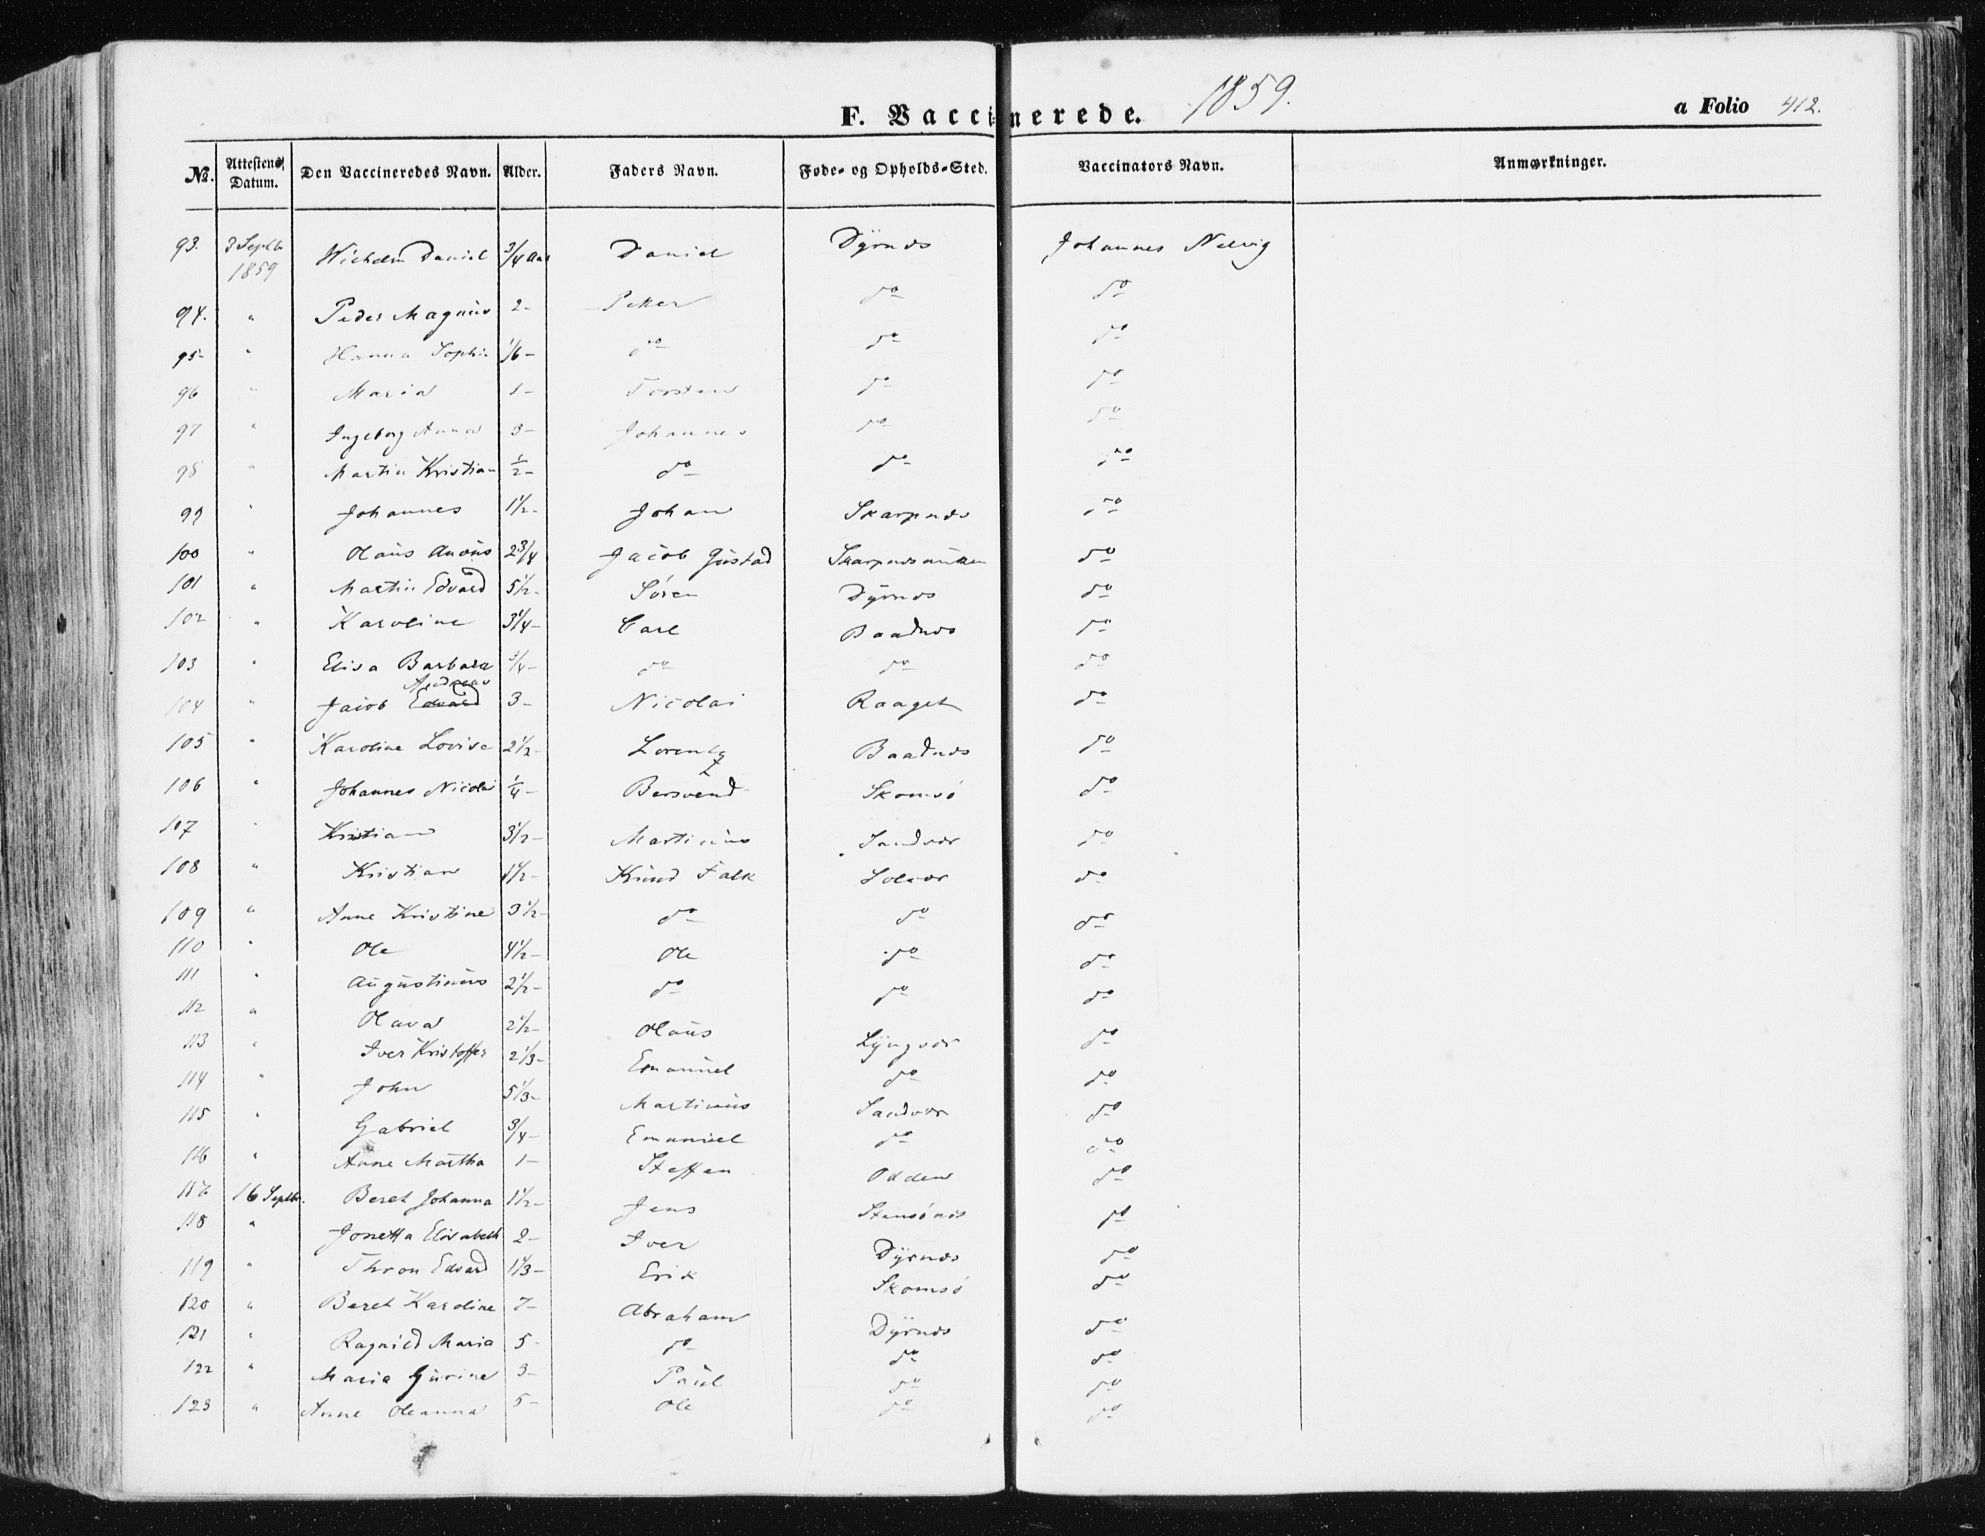 F. Vaccinerede. 1859. a Folio 412.
№. Attestens Datum. Den Vaccineredes Navn. Alder. Faders Navn. Føde- og Opholds-Sted. Vaccinators Navn. Anmærkninger.
93. 3 Septbr 1859 Wichelm Daniel 3/4 Aar Daniel Dÿrnæs Johannes Nelvig
94. " Peder Magnus 2- Peter do do
95- " Hanna Sophie 1/6- do do do
96 " Maria 1- Torsten do do
97 " Ingeborg Anna 3- Johannes do do
98 " Martin Kristian 1/2- do do do
99 " Johannes 1 1/2- Johan Skarpnæs do
100 " Olaus 2 3/4 Jacob Gustad do
101 " Martin Edvard 5 1/2- Søren Dÿrnæs do
102 " Karoline 3 1/4- Carl Baadnæs do
103 " Elisa Barbara 3/4- do do do
104 " Jacob Edvard Andreas 3- Nicolai Raaget do
105 " Karoline Lovise 2 1/2- Lorentz Baadnæs do
106 " Johannes Nicolai 1/4- Bersvend Skomsö do
107 " Kristian 3 1/2- Martinus Sandvær do
108 " Kristian 1 1/2- Knud Falk Solvær do
109 " Anne Kristine 3 1/2- do do do
110 " Ole 4 1/2- Ole do do
111 " Augustinus 2 1/2- do do do
112 " Olava 2 1/2- Olaus Lÿngvær do
113 " Iver Kristoffer 2 1/3- Emanuel do do
114 " John 5 1/3- Martinus Sandvær do
115 " Gabriel 3/4- Emanuel do do
116 " Anne Martha 1- Steffen Odden do
117 16 Septbr. Beret Johanna 1 1/2- Jens Stensönæs do
118 " Jonetta Elisabeth 2- Iver Dÿrnæs do
119 " Thron Edvard 1 1/3- Erik Skomsö do
120 " Beret Karoline 7- Abraham Dÿrnæs do
121 " Ragnild Maria 5- do do do
122 " Maria Gurine 3- Paul do do
123 " Anne Oleanna 5- Ole do do